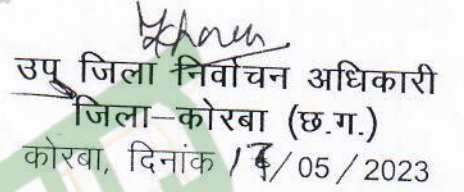 उप जिला निर्वाचन अधिकारी
जिला-कोरबा (छ.ग.)
कोरबा, दिनांक / /05/2023